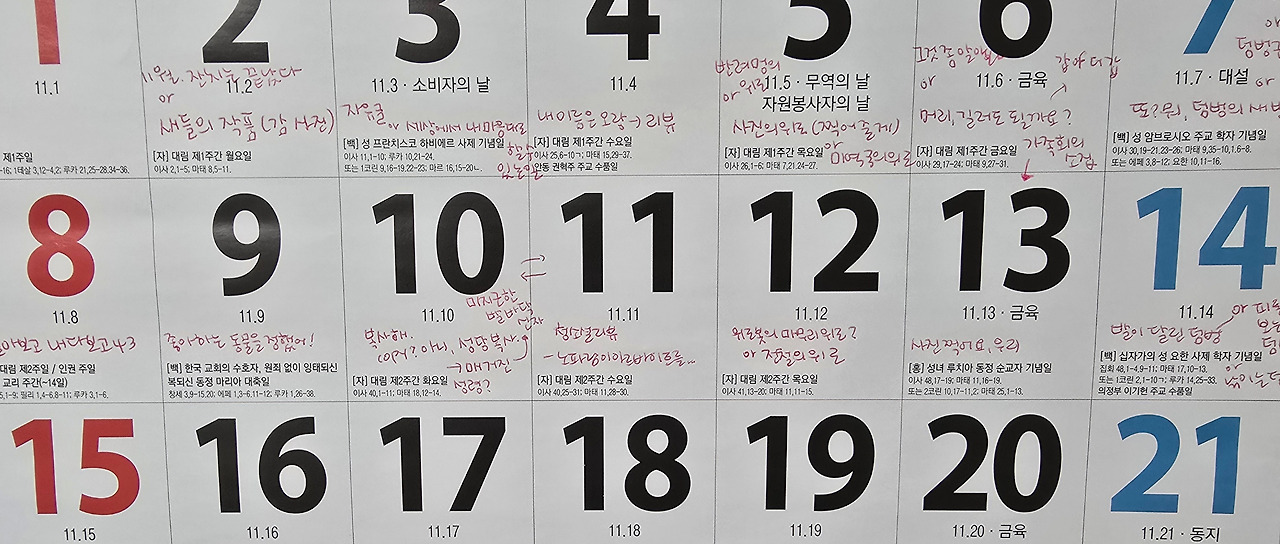 1 2 3 4 5 6 7
11.1
11.2
11.3 · 소비자의 날
11.4
11.5 · 무역의 날
자원봉사자의 날
11.6 · 금육
11.7 · 대설
11월, 잔치는 끝났다
or
새들의 작품 (감 사진)
자유글
or 세상에서 내 마음대로
할 수
있는 일
내 이름은 오랑 → 리뷰
반려명의
or 위로
사진의 위로 (찍어 줄게)
or 미역국의 위로
or
머리, 길러도 될까요?
가족회의
또? 뭐, 텀벙의 새
제1주일
-16; 1테살 3,12-4,2; 루카 21,25-28.34-36.
[자] 대림 제1주간 월요일
이사 2,1-5; 마태 8,5-11.
[백] 성 프란치스코 하비에르 사제 기념일
이사 11,1-10; 루카 10,21-24.
또는 1코린 9,16-19.22-23; 마르 16,15-20
[자] 대림 제1주간 수요일
이사 25,6-10ㄱ; 마태 15,29-37.
안동 권혁주 주교 수품일
[자] 대림 제1주간 목요일
이사 26,1-6; 마태 7,21.24-27.
[자] 대림 제1주간 금요일
이사 29,17-24; 마태 9,27-31.
[백] 성 암브로시오 주교 학자 기념일
이사 30,19-21.23-26; 마태 9,35-10,1.6-8.
또는 에페 3,8-12; 요한 10,11-16.
8 9 10 11 12 13 14
11.8
11.9
11.10
11.11
11.12
11.13 · 금육
11.14
돌아보고 내다보고 43
좋아하는 동물을 정했어!
미지근한
발바닥
복사해.
(여자? 아이, 성당 복사.
→ 매거진
청산별리뷰
위로봇의 마무리 위로?
or 전철의 위로
사진 찍어요, 우리
발이 달린 텀벙
대림 제2주일 / 인권 주일
교리 주간(~14일)
5,1-9; 필리 1,4-6.8-11; 루카 3,1-6.
[백] 한국 교회의 수호자, 원죄 없이 잉태되신
복되신 동정 마리아 대축일
창세 3,9-15.20; 에페 1,3-6.11-12; 루카 1,26-38.
[자] 대림 제2주간 화요일
이사 40,1-11; 마태 18,12-14.
[자] 대림 제2주간 수요일
이사 40,25-31; 마태 11,28-30.
[자] 대림 제2주간 목요일
이사 41,13-20; 마태 11,11-15.
[홍] 성녀 루치아 동정 순교자 기념일
이사 48,17-19; 마태 11,16-19.
또는 2코린 10,17-11,2; 마태 25,1-13.
[백] 십자가의 성 요한 사제 학자 기념일
집회 48,1-4.9-11; 마태 17,10-13.
또는 1코린 2,1-10ㄱ; 루카 14,25-33.
의정부 이기헌 주교 수품일
15 16 17 18 19 20 21
11.15
11.16
11.17
11.18
11.19
11.20 · 금육
11.21 · 동지